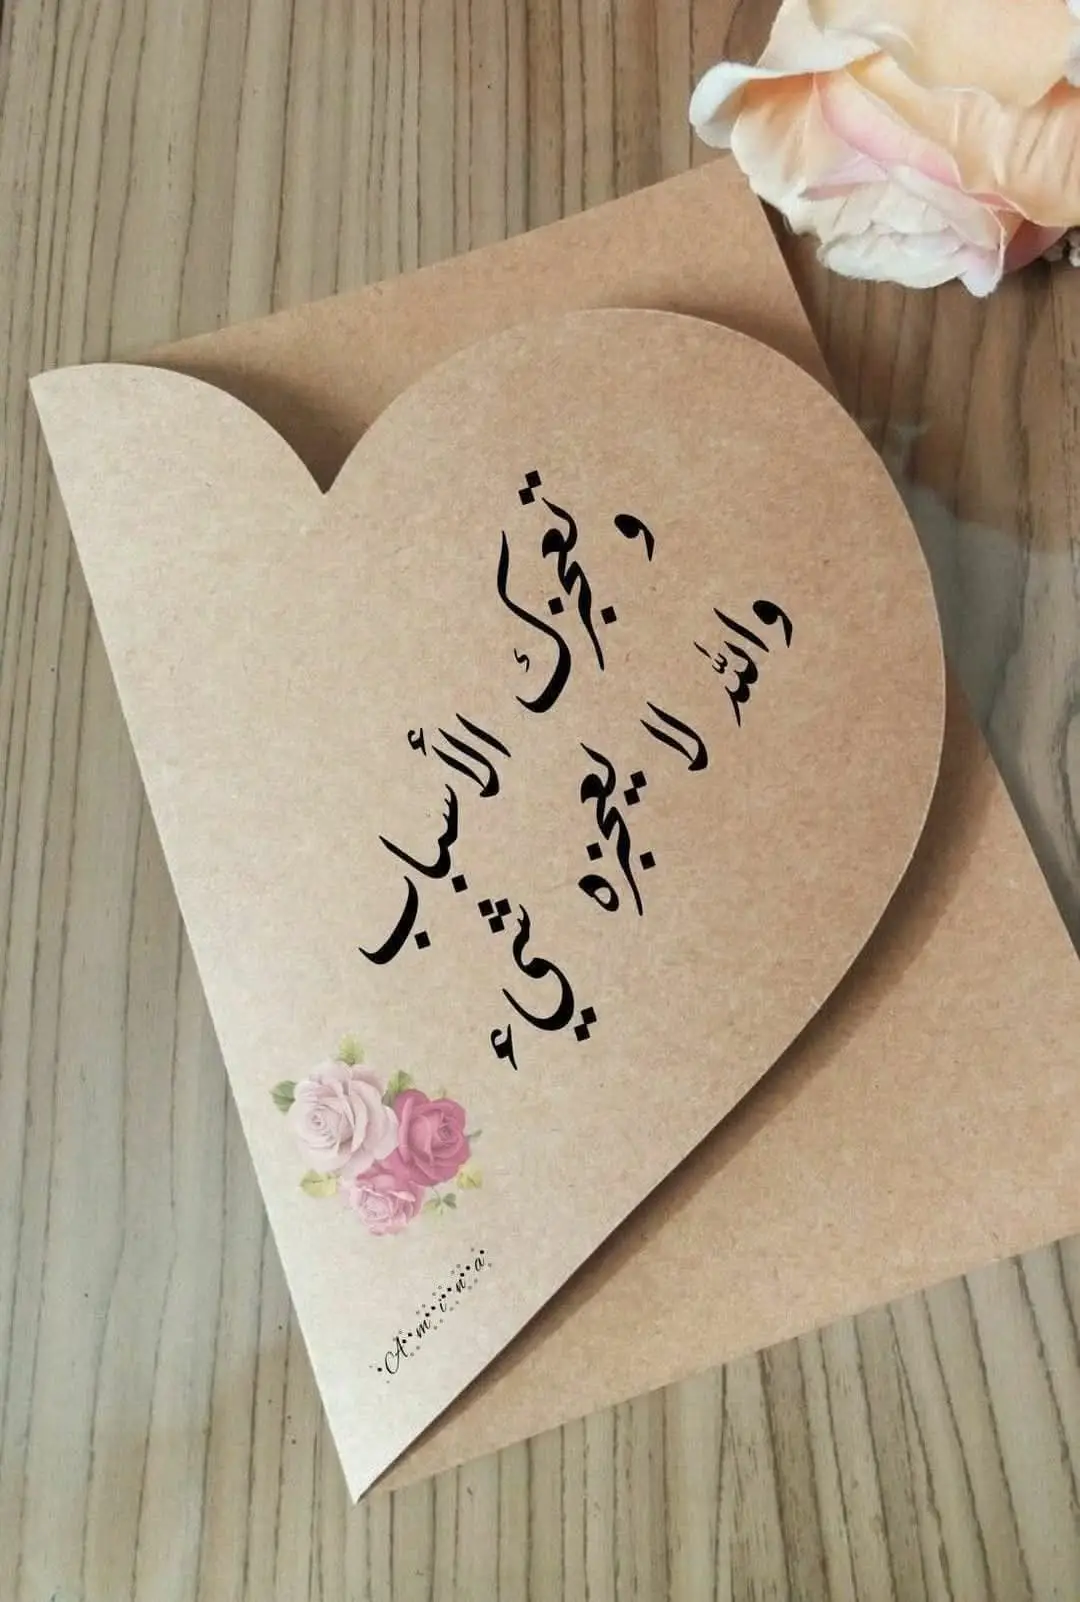 و تعجزك الأسباب
والله لا يعجزه شيء
Amina